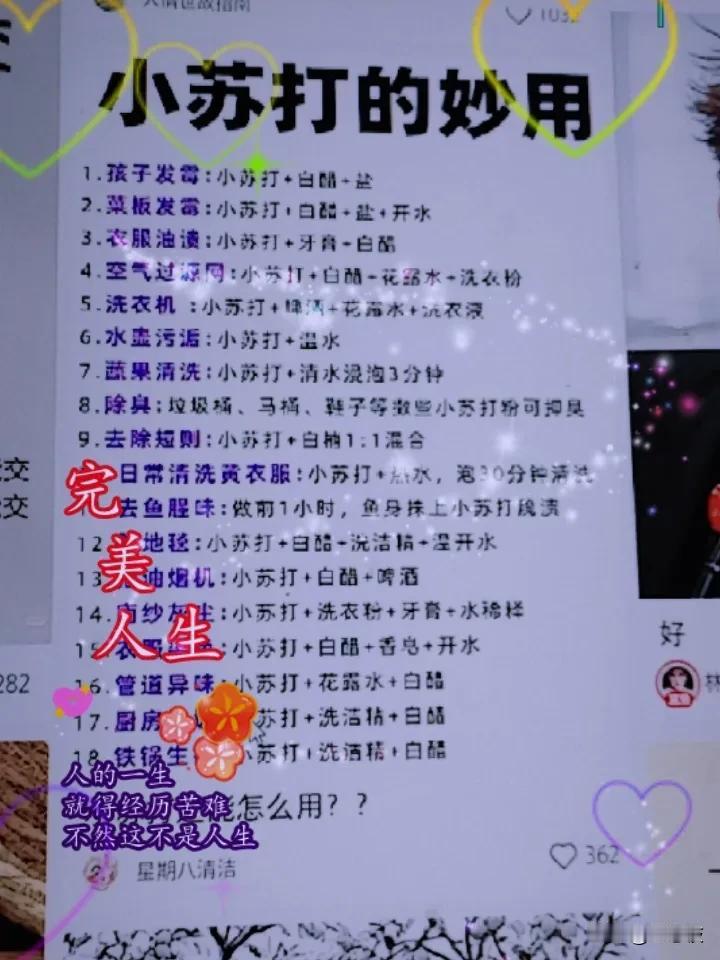 人情世故指南
小苏打的妙用
1.孩子发霉:小苏打+白醋+盐
2.菜板发霉:小苏打+白醋+盐+开水
3.衣服油渍:小苏打+牙膏+白醋
4.空气过滤网:小苏打+白醋+花露水+洗衣粉
5.洗衣机:小苏打+啤酒+花露水+洗衣液
6.水壶污垢:小苏打+温水
7.蔬果清洗:小苏打+清水浸泡3分钟
8.除臭:垃圾桶、马桶、鞋子等撒些小苏打粉可抑臭
9.去除短则:小苏打+白柚1:1混合
日常清洗黄衣服:小苏打+热水，泡30分钟清洗
去鱼腥味:做前1小时，鱼身抹上小苏打腌渍
12 地毯:小苏打+白醋+洗洁精+温开水
13 油烟机:小苏打+白醋+啤酒
14. 纱灰尘:小苏打+洗衣粉+牙膏+水稀释
15 衣服 :小苏打+白醋+香皂+开水
16.管道异味:小苏打+花露水+白醋
17.厨房 苏打+洗洁精+白醋
18.铁锅生 苏打+洗洁精+白醋
完
美
人生
人的一生
就得经历苦难
不然这不是人生
怎么用？？
星期八清洁
362
282
交
交
好
林